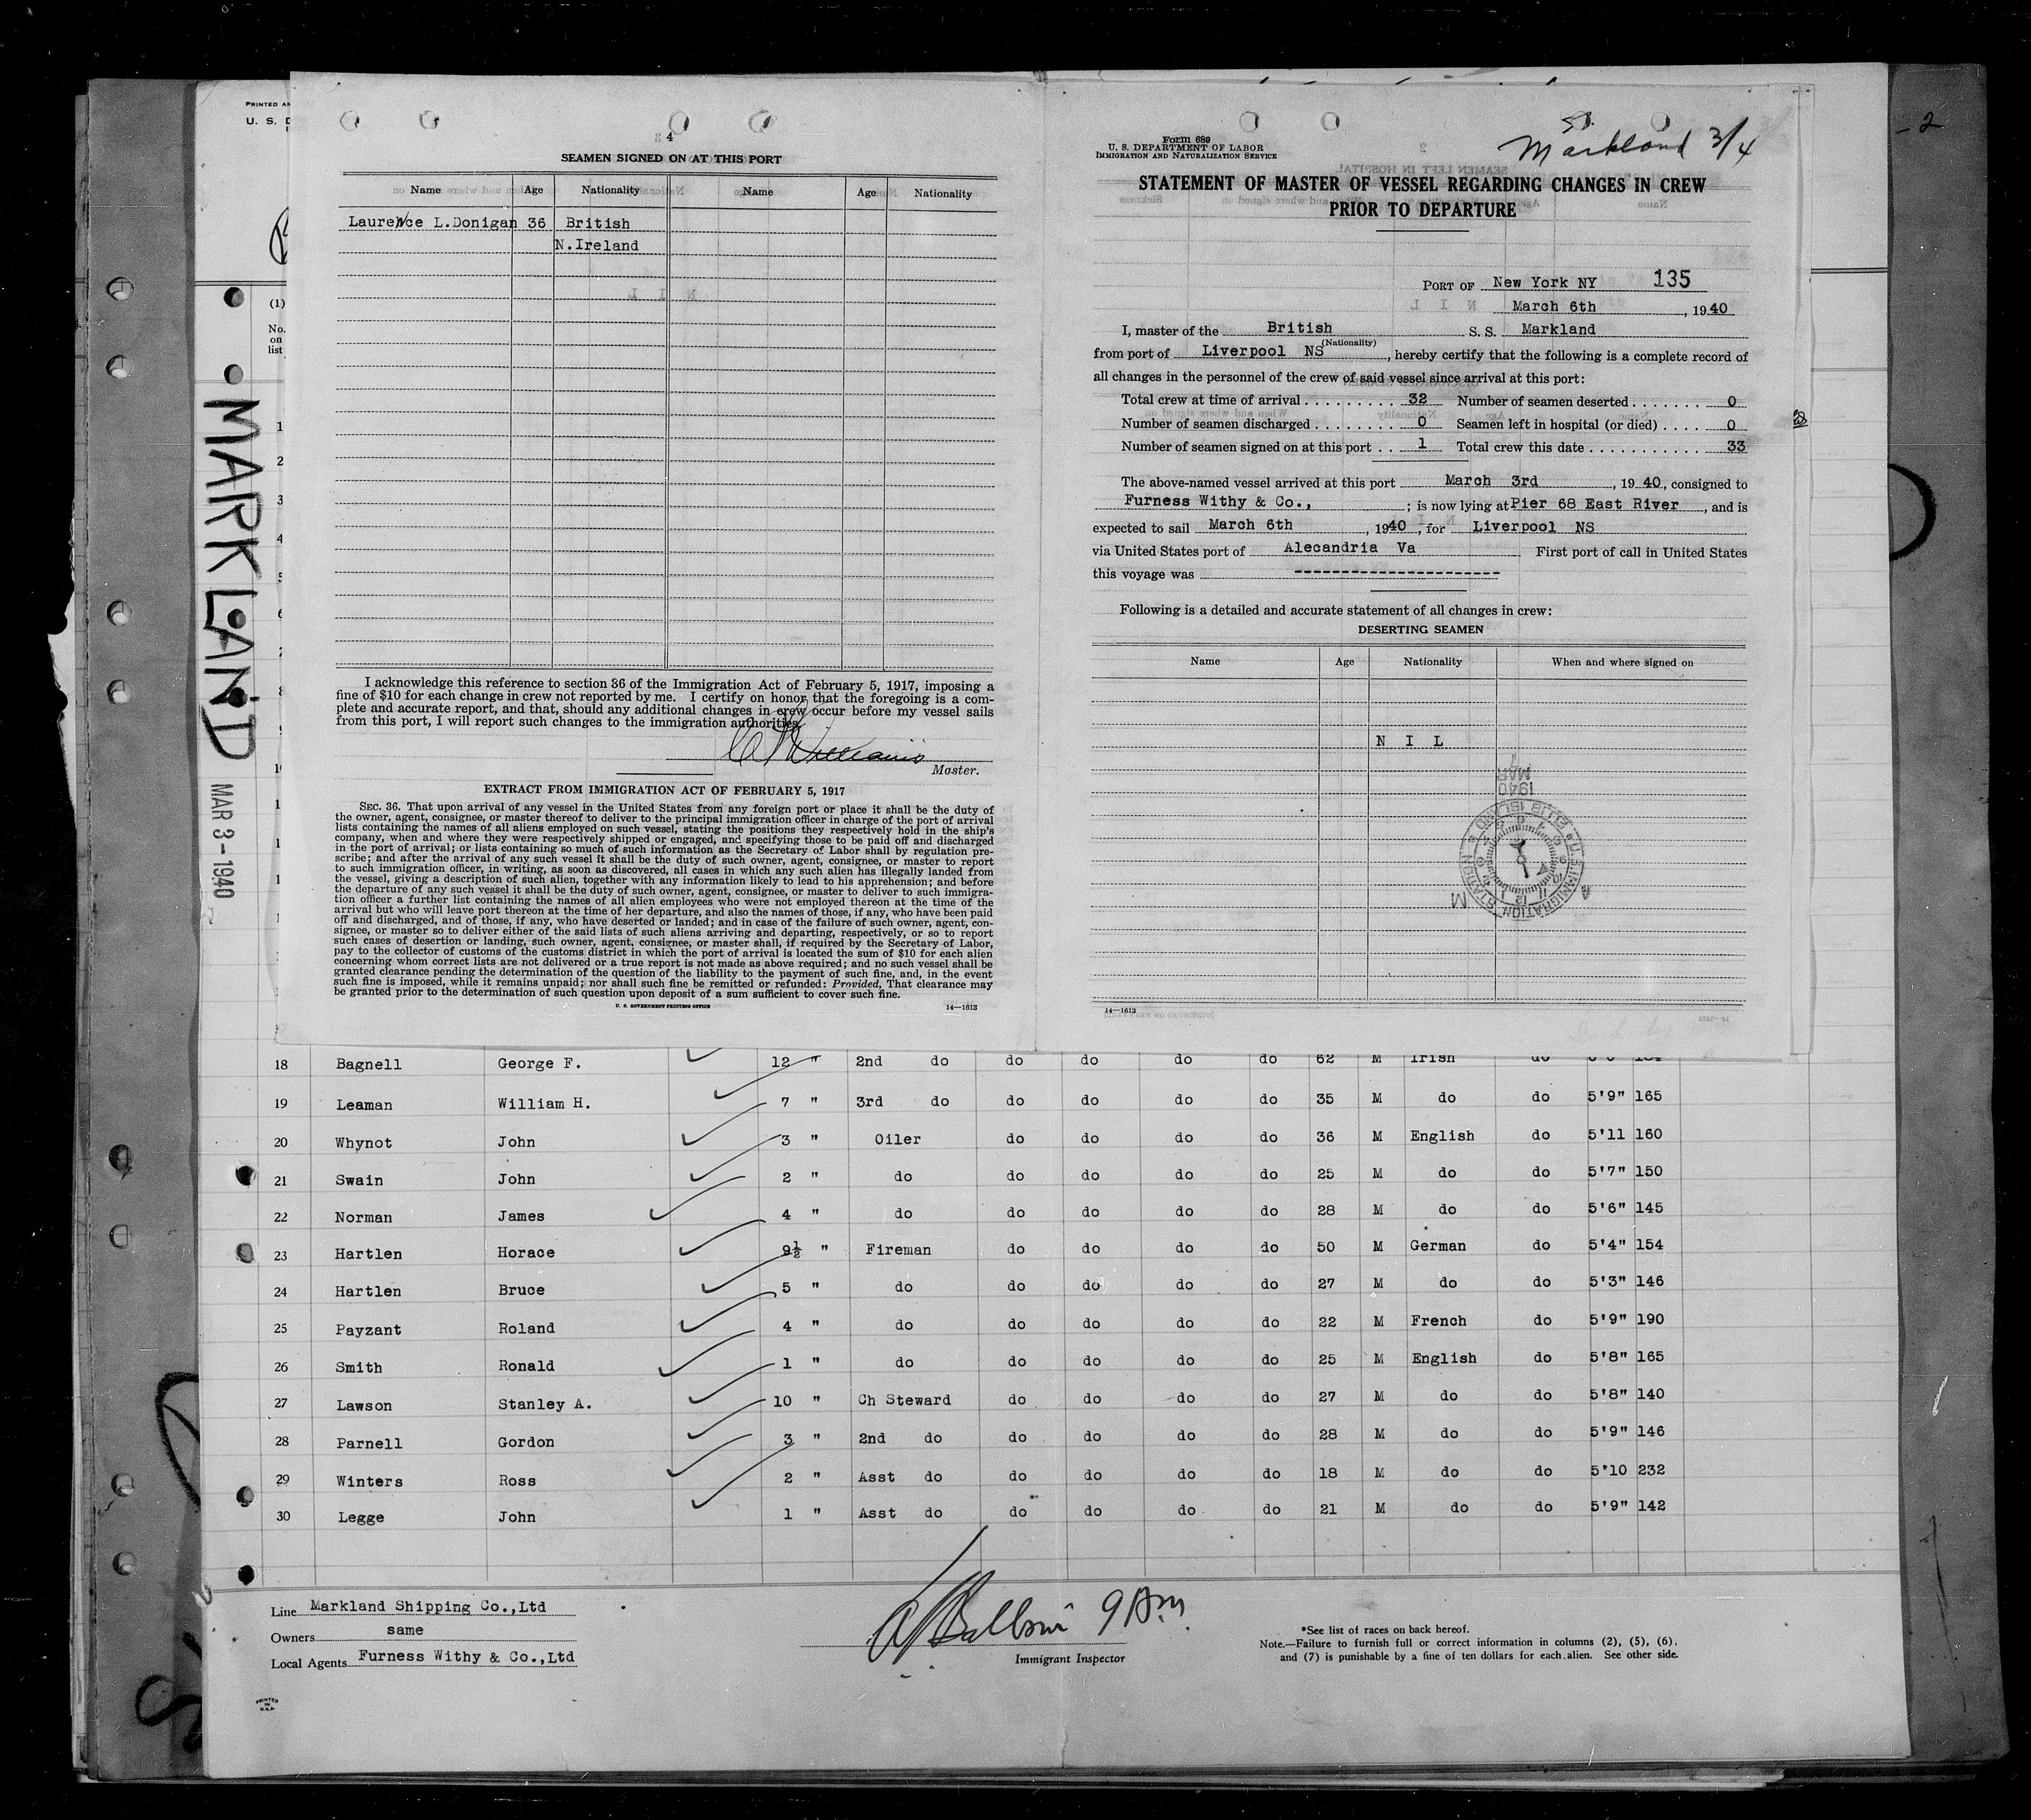 PRINTED AN
U. S. D
(1)
No.
on
list
MARKLAND
MAR 3 - 1940
4
SEAMEN SIGNED ON AT THIS PORT
Name Age Nationality Name Age Nationality
Laurence L.Donigan 36 British
N.Ireland
I acknowledge this reference to section 36 of the Immigration Act of February 5, 1917, imposing a
fine of $10 for each change in crew not reported by me. I certify on honor that the foregoing is a com-
plete and accurate report, and that, should any additional changes in crew occur before my vessel sails
from this port, I will report such changes to the immigration authorities.
Williams
Master.
EXTRACT FROM IMMIGRATION ACT OF FEBRUARY 5, 1917
SEC. 36. That upon arrival of any vessel in the United States from any foreign port or place it shall be the duty of
the owner, agent, consignee, or master thereof to deliver to the principal immigration officer in charge of the port of arrival
lists containing the names of all aliens employed on such vessel, stating the positions they respectively hold in the ship's
company, when and where they were respectively shipped or engaged, and specifying those to be paid off and discharged
in the port of arrival; or lists containing so much of such information as the Secretary of Labor shall by regulation pre-
scribe; and after the arrival of any such vessel it shall be the duty of such owner, agent, consignee, or master to report
to such immigration officer, in writing, as soon as discovered, all cases in which any such alien has illegally landed from
the vessel, giving a description of such alien, together with any information likely to lead to his apprehension; and before
the departure of any such vessel it shall be the duty of such owner, agent, consignee, or master to deliver to such immigra-
tion officer a further list containing the names of all alien employees who were not employed thereon at the time of the
arrival but who will leave port thereon at the time of her departure, and also the names of those, if any, who have been paid
off and discharged, and of those, if any, who have deserted or landed; and in case of the failure of such owner, agent, con-
signee, or master so to deliver either of the said lists of such aliens arriving and departing, respectively, or so to report
such cases of desertion or landing, such owner, agent, consignee, or master shall, if required by the Secretary of Labor,
pay to the collector of customs of the customs district in which the port of arrival is located the sum of $10 for each alien
concerning whom correct lists are not delivered or a true report is not made as above required; and no such vessel shall be
granted clearance pending the determination of the question of the liability to the payment of such fine, and, in the event
such fine is imposed, while it remains unpaid; nor shall such fine be remitted or refunded: Provided, That clearance may
be granted prior to the determination of such question upon deposit of a sum sufficient to cover such fine.
U. S. GOVERNMENT PRINTING OFFICE 14—1613
Form 689
U. S. DEPARTMENT OF LABOR
IMMIGRATION AND NATURALIZATION SERVICE
SS.
Markland 3/4
STATEMENT OF MASTER OF VESSEL REGARDING CHANGES IN CREW
PRIOR TO DEPARTURE
PORT OF New York NY 135
March 6th, 1940
I, master of the British S. S. Markland
(Nationality)
from port of Liverpool NS, hereby certify that the following is a complete record of
all changes in the personnel of the crew of said vessel since arrival at this port:
Total crew at time of arrival . . . . . . . . . 32 Number of seamen deserted . . . . . . . 0
Number of seamen discharged . . . . . . . . 0 Seamen left in hospital (or died) . . . . 0
Number of seamen signed on at this port . . 1 Total crew this date . . . . . . . . . . . 33
The above-named vessel arrived at this port March 3rd, 1940, consigned to
Furness Withy & Co., ; is now lying at Pier 68 East River, and is
expected to sail March 6th, 1940, for Liverpool NS
via United States port of Alecandria Va First port of call in United States
this voyage was ----------------------
Following is a detailed and accurate statement of all changes in crew:
DESERTING SEAMEN
Name Age Nationality When and where signed on
N I L
MAR
1940
U.S. IMMIGRATION STATION ELLIS ISLAND
A M
14—1613
- 2
18 Bagnell George F. 12 " 2nd do do do do do 62 M Irish do
19 Leaman William H. 7 " 3rd do do do do do 35 M do do 5'9" 165
20 Whynot John 3 " Oiler do do do do 36 M English do 5'11 160
21 Swain John 2 " do do do do do 25 M do do 5'7" 150
22 Norman James 4 " do do do do do 28 M do do 5'6" 145
23 Hartlen Horace 9½ " Fireman do do do do 50 M German do 5'4" 154
24 Hartlen Bruce 5 " do do do do do 27 M do do 5'3" 146
25 Payzant Roland 4 " do do do do do 22 M French do 5'9" 190
26 Smith Ronald 1 " do do do do do 25 M English do 5'8" 165
27 Lawson Stanley A. 10 " Ch Steward do do do do 27 M do do 5'8" 140
28 Parnell Gordon 3 " 2nd do do do do do 28 M do do 5'9" 146
29 Winters Ross 2 " Asst do do do do do 18 M do do 5'10 232
30 Legge John 1 " Asst do do do do do 21 M do do 5'9" 142
Line Markland Shipping Co.,Ltd
Owners same
Local Agents Furness Withy & Co.,Ltd
9 Am
Immigrant Inspector
*See list of races on back hereof.
Note.—Failure to furnish full or correct information in columns (2), (5), (6),
and (7) is punishable by a fine of ten dollars for each alien. See other side.
PRINTED
IN
U.S.A.